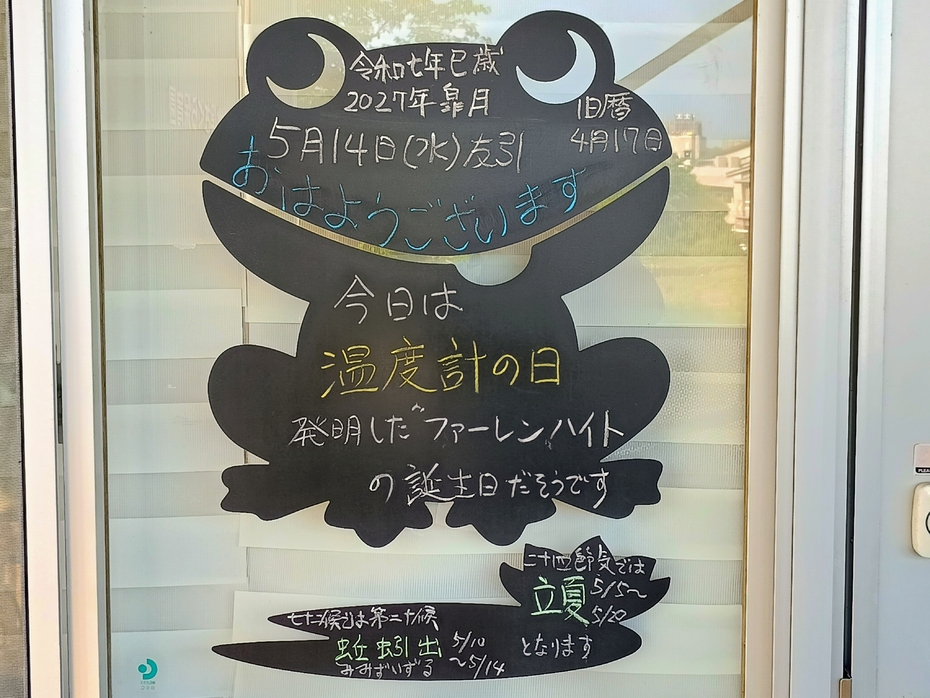 令和七年巳歳
2027年皐月
旧暦
4月17日
5月14日(水)友引
おはようございます
今日は
温度計の日
発明した"ファーレンハイト
の誕生日だそうです
二十四節気では
立夏 5/5〜
5/20
となります
七十二候では第二十候
蚯蚓出 5/10
〜5/14
みみずいずる